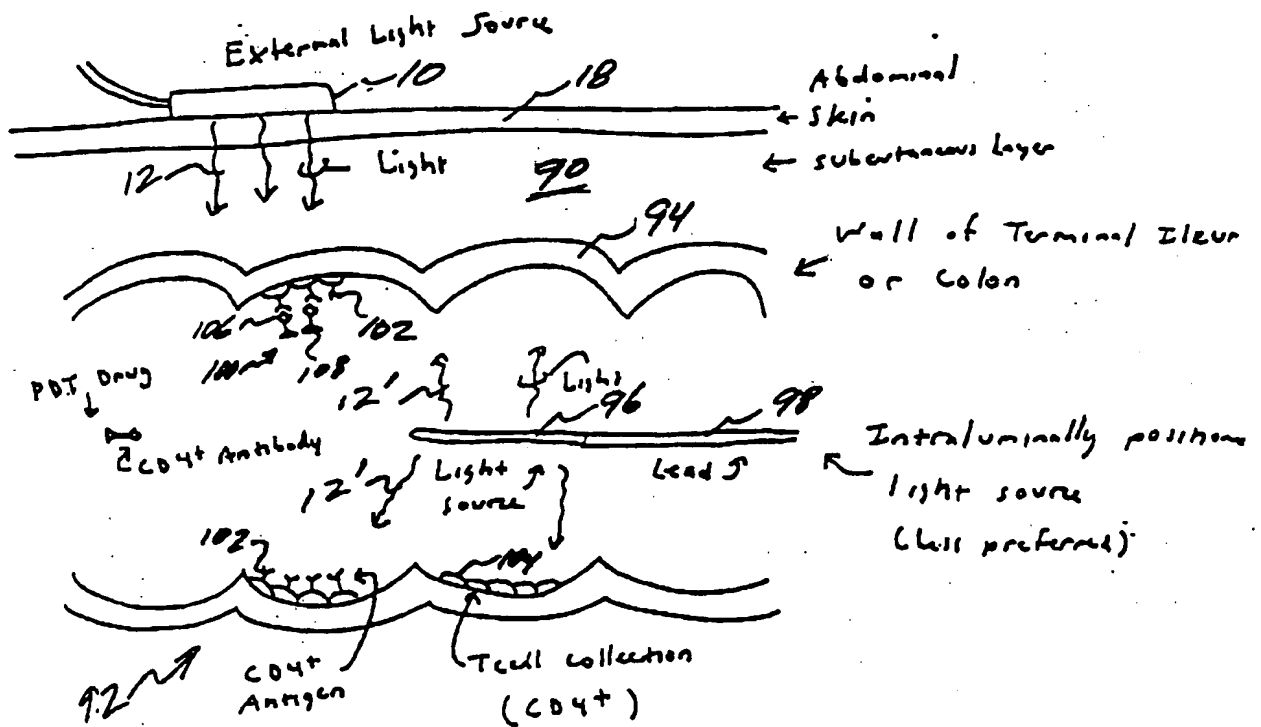 External Light Source
10
18
Abdominal
Skin
subcutaneous Layer
12
Light
90
94
Wall of Terminal Ileum
or Colon
106
102
100
108
PDT Drug
12'
Light
96
98
CD4+ Antibody
Intraluminally position
light source
(less preferred)
12'
Light
source
Lead
102
104
CD4+
Antigen
T cell collection
(CD4+)
92